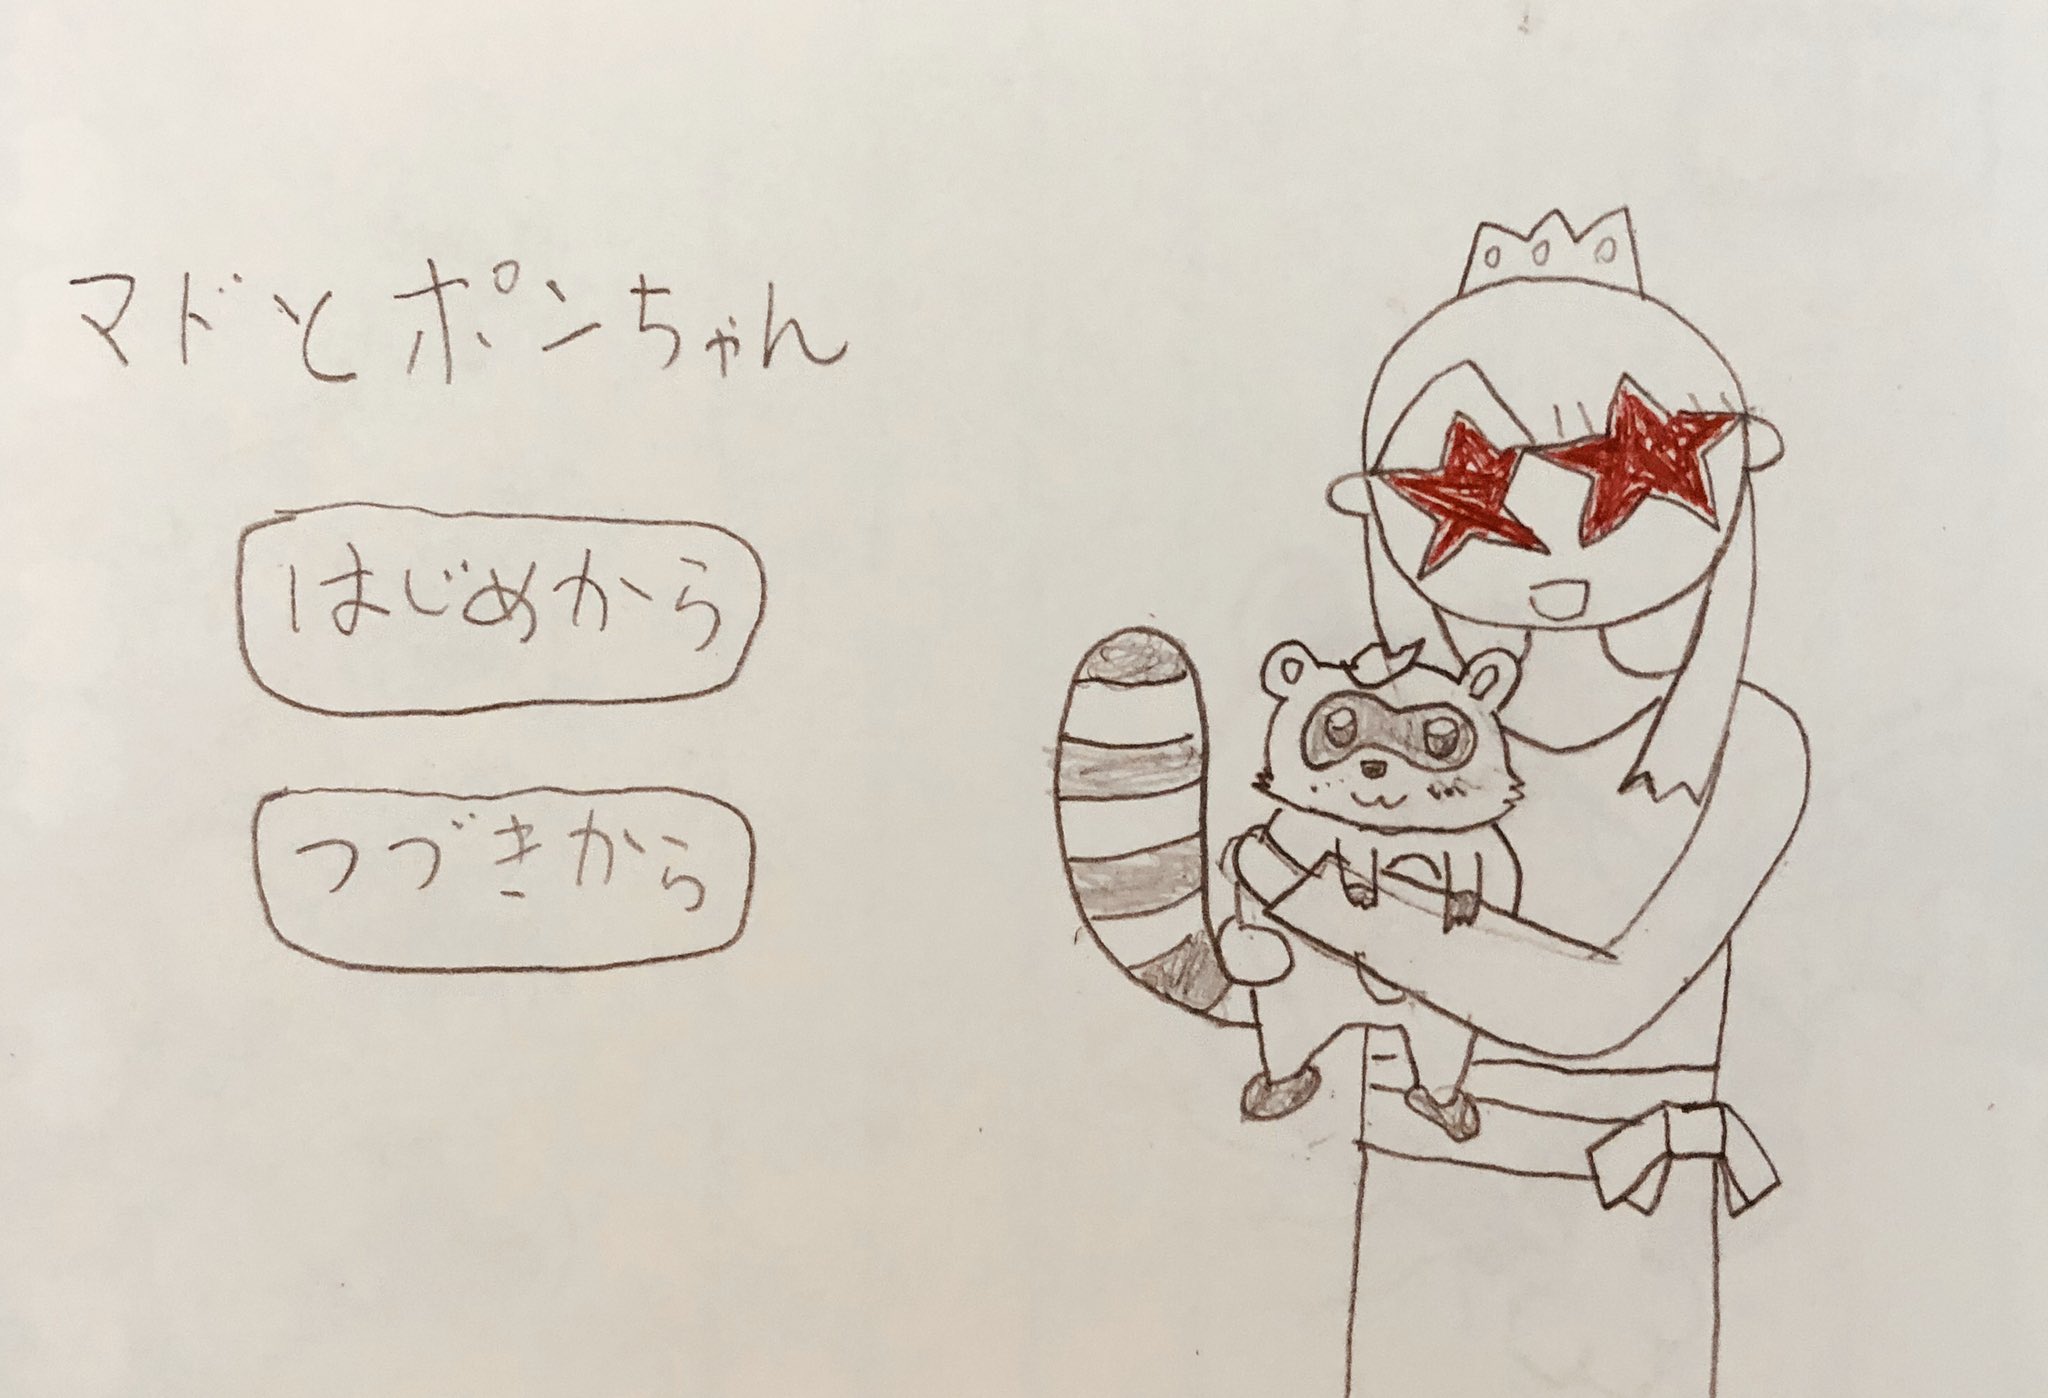 マドとポンちゃん
はじめから
つづきから